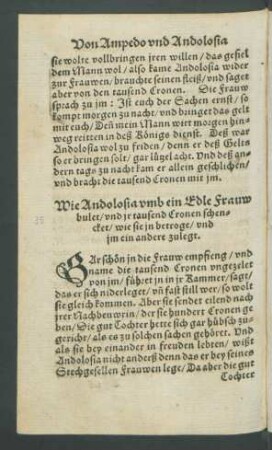 Von Ampedo vnd Andolosia
sie wolte vollbringen jren willen / das gefiel
dem Mann wol / also kame Andolosia wider
zur Frauwen / brauchte seinen fleiß / vnd saget
aber von den tausend Cronen. Die Frauw
sprach zu jm : Ist euch der Sachen ernst / so
kompt morgen zu nacht / vnd bringet das gelt
mit euch / Deñ mein Mann wirt morgen hin-
weg reitten in deß Königs dienst. Deß war
Andolosia wol zu friden / denn er deß Gelts
so er bringen solt / gar lützel acht. Vnd deß an-
dern tags zu nacht kam er allein geschlichen /
vnd bracht die tausend Cronen mit jm.
Wie Andolosia vmb ein Edle Frauw
bulet / vnd jr tausend Cronen schen-
cket / wie sie jn betroge / vnd
jm ein andere zulegt.
GAr schön in die Frauw empfieng / vnd
name die tausend Cronen vngezelet
von jm / führet in in jr Kammer / sagt /
das er sich niderleget / vñ fast still wer / so wolt
sie gleich kommen. Aber sie sendet eilend nach
jrer Nachbeuwrin / der sie hundert Cronen ge-
ben / Die gut Tochter hette sich gar hübsch zu-
gericht / als es zu solchen sachen gehöret. Vnd
als sie bey einander in freuden lebten / wißt
Andolosia nicht anderst denn das er bey seines
Stechgesellen Frauwen lege / Da aber die gut
Tochter